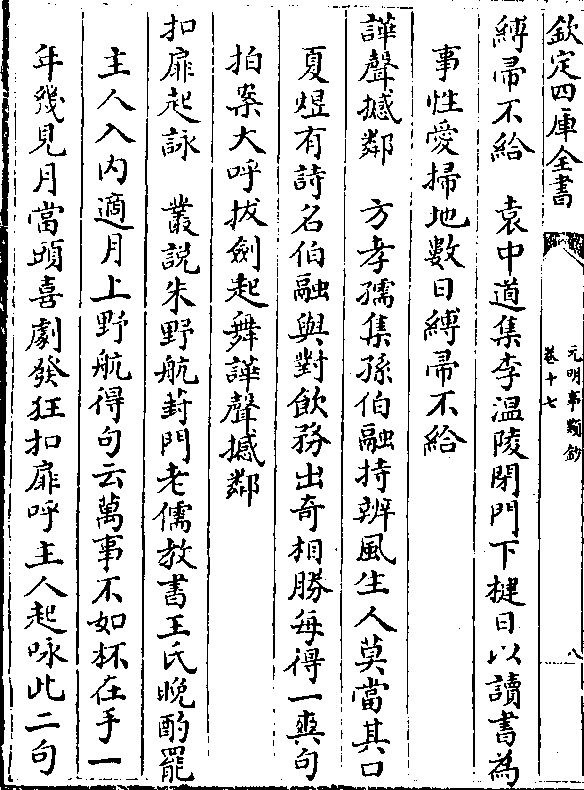 欽定四庫全書
元明事類鈔
卷十七
八
縛帚不給　袁中道集李溫陵閉門下揵日以讀書為
事性愛掃地數日縛帚不給
譁聲撼鄰　方孝孺集孫伯融持辨風生人莫當其口
夏煜有詩名伯融與對飲務出奇相勝每得一爽句
拍案大呼拔劍起舞譁聲撼鄰
扣扉起詠　叢説朱野航葑門老儒教書王氏晚酌罷
主人入内適月上野航得句云萬事不如杯在手一
年幾見月當頭喜劇發狂扣扉呼主人起咏此二句